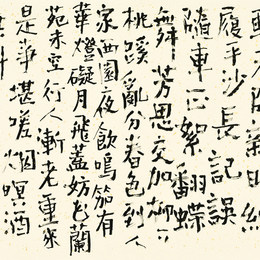 履平沙長記誤
隨車正絮翻蝶
舞芳思交加柳下
桃蹊亂分春色到人
家西園夜飲鳴笳有
華燈礙月飛蓋妨花蘭
苑未空行人漸老重來
是事堪嗟烟暝酒